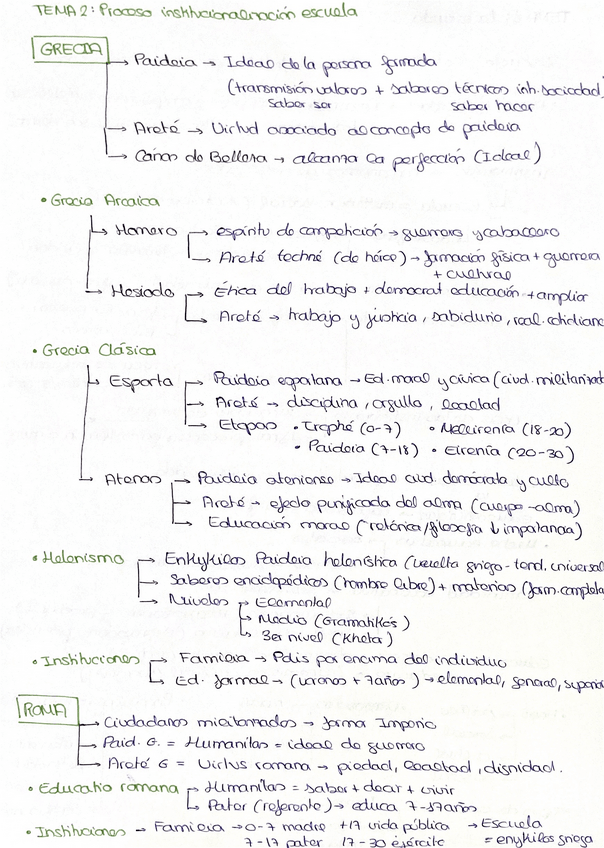 TEMA 2: Proceso institucionalización escuela
GRECIA
→ Paideia → Ideal de la persona formada
(transmisión valores + saberes técnicos inh. sociedad)
saber ser saber hacer
→ Areté → Virtud asociada al concepto de paideia
→ Canon de Belleza → alcanza la perfección (Ideal)
• Grecia Arcaica
↳ Homero → espíritu de competición → guerrero y caballero
↳ Areté techné (de héroe) → formación física + guerrera
+ cultural
↳ Hesiodo → Ética del trabajo + democrat educación + ampliar
↳ Areté → trabajo y justicia, sabiduría, real. cotidiana
• Grecia Clásica
↳ Esparta → Paideia espatana → Ed. moral y cívica (ciud. militarizad
→ Areté → disciplina, orgullo, lealtad
→ Etapas • Trophé (0-7) • Melirenía (18-20)
• Paideia (7-18) • Eirenía (20-30)
↳ Atenas → Paideia ateniense → Ideal ciud. demócrata y culto
→ Areté → efecto purificada del alma (cuerpo-alma)
→ Educación moral (retórica/filosofía ↓ importancia)
• Helenismo → Enkyklios Paideia helenística (vuelta griego-tend. universal
→ Saberes enciclopédicos (hombre libre) + materias (form. completa
→ Niveles → Elemental
↳ Medio (Gramatikós)
↳ 3er nivel
• Instituciones → Familia → Polis por encima del individuo
↳ Ed. formal → (varones + 7 años) → elemental, general, superior
ROMA
→ Ciudadanos militarizados → forma Imperio
→ Paid. G. = Humanitas = ideal de guerrero
→ Areté G = Virtus romana → piedad, lealtad, dignidad.
• Educatio romana → Humanitas = saber + decir + vivir
↳ Pater (referente) → educa 7-17 años
• Instituciones → Familia → 0-7 madre +17 vida pública → Escuela
7-17 pater 17-30 ejército = enkyklios griega